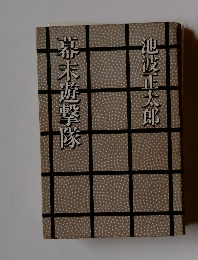 池波正太郎
幕末遊撃隊